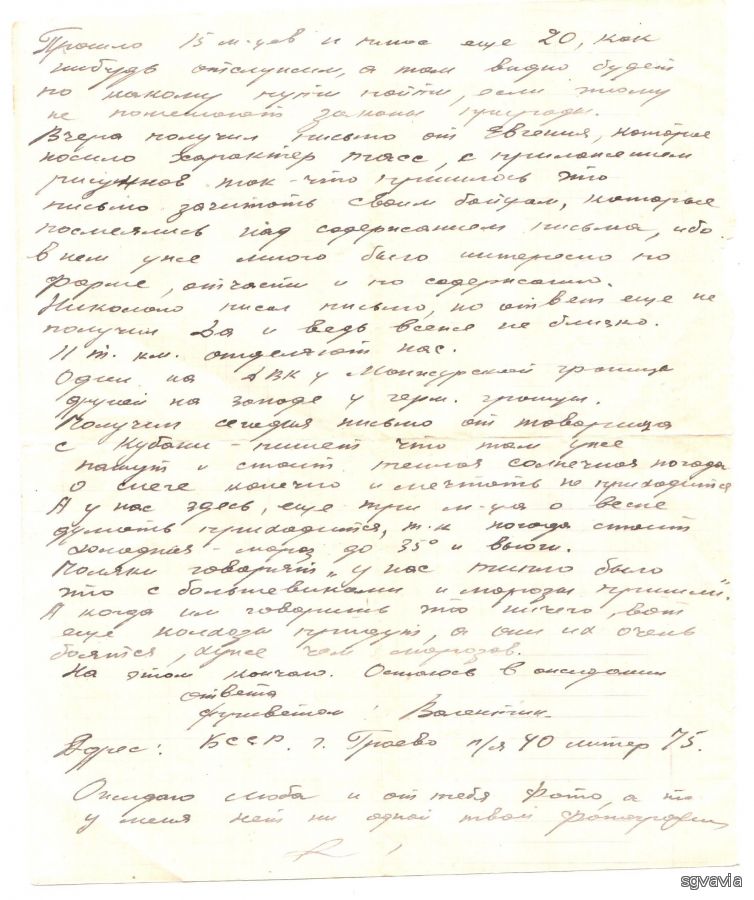 Прошло 15 м-цев и плюс еще 20, как
нибудь отслужим, а там видно будет
по какому пути пойти, если этому
не помешают законы природы.
Вчера получил письмо от Евгения, которое
носило характер масс, с приложением
рисунков так-что пришлось это
письмо зачитать своим бойцам, которые
посмеялись над содержанием письма, ибо
в нем уже много было интересно по
форме, отчасти и по содержанию.
Николаю писал письмо, но ответ еще не
получил Да и ведь все не близко.
11 т. км. отделяют нас.
Один на ДВК у Манжурской границе
другой на западе у герм. границы.
Получил сегодня письмо от товарища
с Кубани - пишет что там уже
пашут и стоит теплая солнечная погода
о снеге конечно и мечтать не приходится
А у нас здесь, еще три м-ца о весне
думать приходится, т-к погода стоит
холодная - мороз до 35° и вьюги.
Поляки говорят „у нас тепло было
это с большевиками и морозы пришли".
А когда им говорить это ничего, вот
еще колхозы придут, а они их очень
боятся, хуже чем морозов.
На этом кончаю. Остаюсь в ожидании
ответа
с приветом! Валентин.
Адрес: БССР. г. Граево п/я 40 литер 75.
Ожидаю Люба и от тебя фото, а то
у меня нет ни одной твоей фотографии
sgvavia